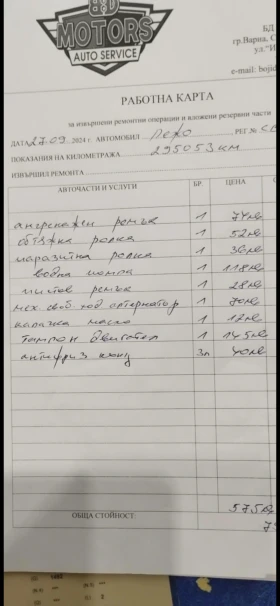 B&D
MOTORS
AUTO SERVICE
БД
гр.Варна, С
ул."И
e-mail: bojid
РАБОТНА КАРТА
за извършени ремонтни операции и вложени резервни части
ДАТА 27.09. 2024 г. АВТОМОБИЛ Пежо РЕГ № СВ
ПОКАЗАНИЯ НА КИЛОМЕТРАЖА 295053 км
ИЗВЪРШИЛ РЕМОНТА
АВТОЧАСТИ И УСЛУГИ БР. ЦЕНА
ангренажен ремък 1 74лв
обтяжна ролка 1 52лв
паразитна ролка 1 36лв
водна помпа 1 118лв
пистов ремък 1 28лв
мех. своб. ход алтернатор 1 70лв
капачка масло 1 12лв
тампон двигател 1 145лв
антифриз конц 3л 40лв
575лв
ОБЩА СТОЙНОСТ: